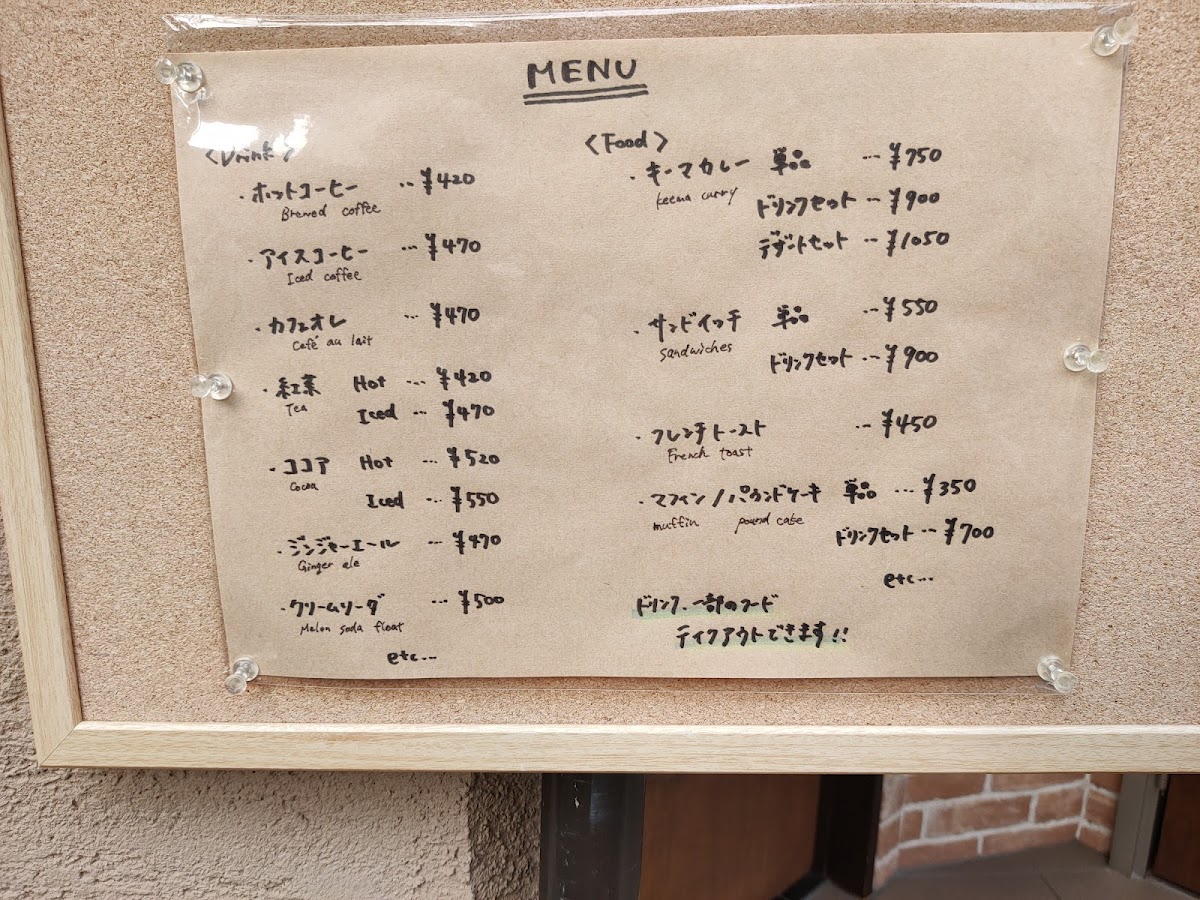 MENU
<Drink>
・ホットコーヒー … ¥420
Brewed coffee
・アイスコーヒー … ¥470
Iced coffee
・カフェオレ … ¥470
Café au lait
・紅茶 Hot … ¥420
Tea
Iced … ¥470
・ココア Hot … ¥520
Cocoa
Iced … ¥550
・ジンジャーエール … ¥470
Ginger ale
・クリームソーダ … ¥500
Melon soda float
etc…
<Food>
・キーマカレー 単品 … ¥750
keema curry
ドリンクセット … ¥900
デザートセット … ¥1050
・サンドイッチ 単品 … ¥550
sandwiches
ドリンクセット … ¥900
・フレンチトースト … ¥450
French toast
・マフィン/パウンドケーキ 単品 … ¥350
muffin pound cake
ドリンクセット … ¥700
etc…
ドリンク、一部のフード
テイクアウトできます!!